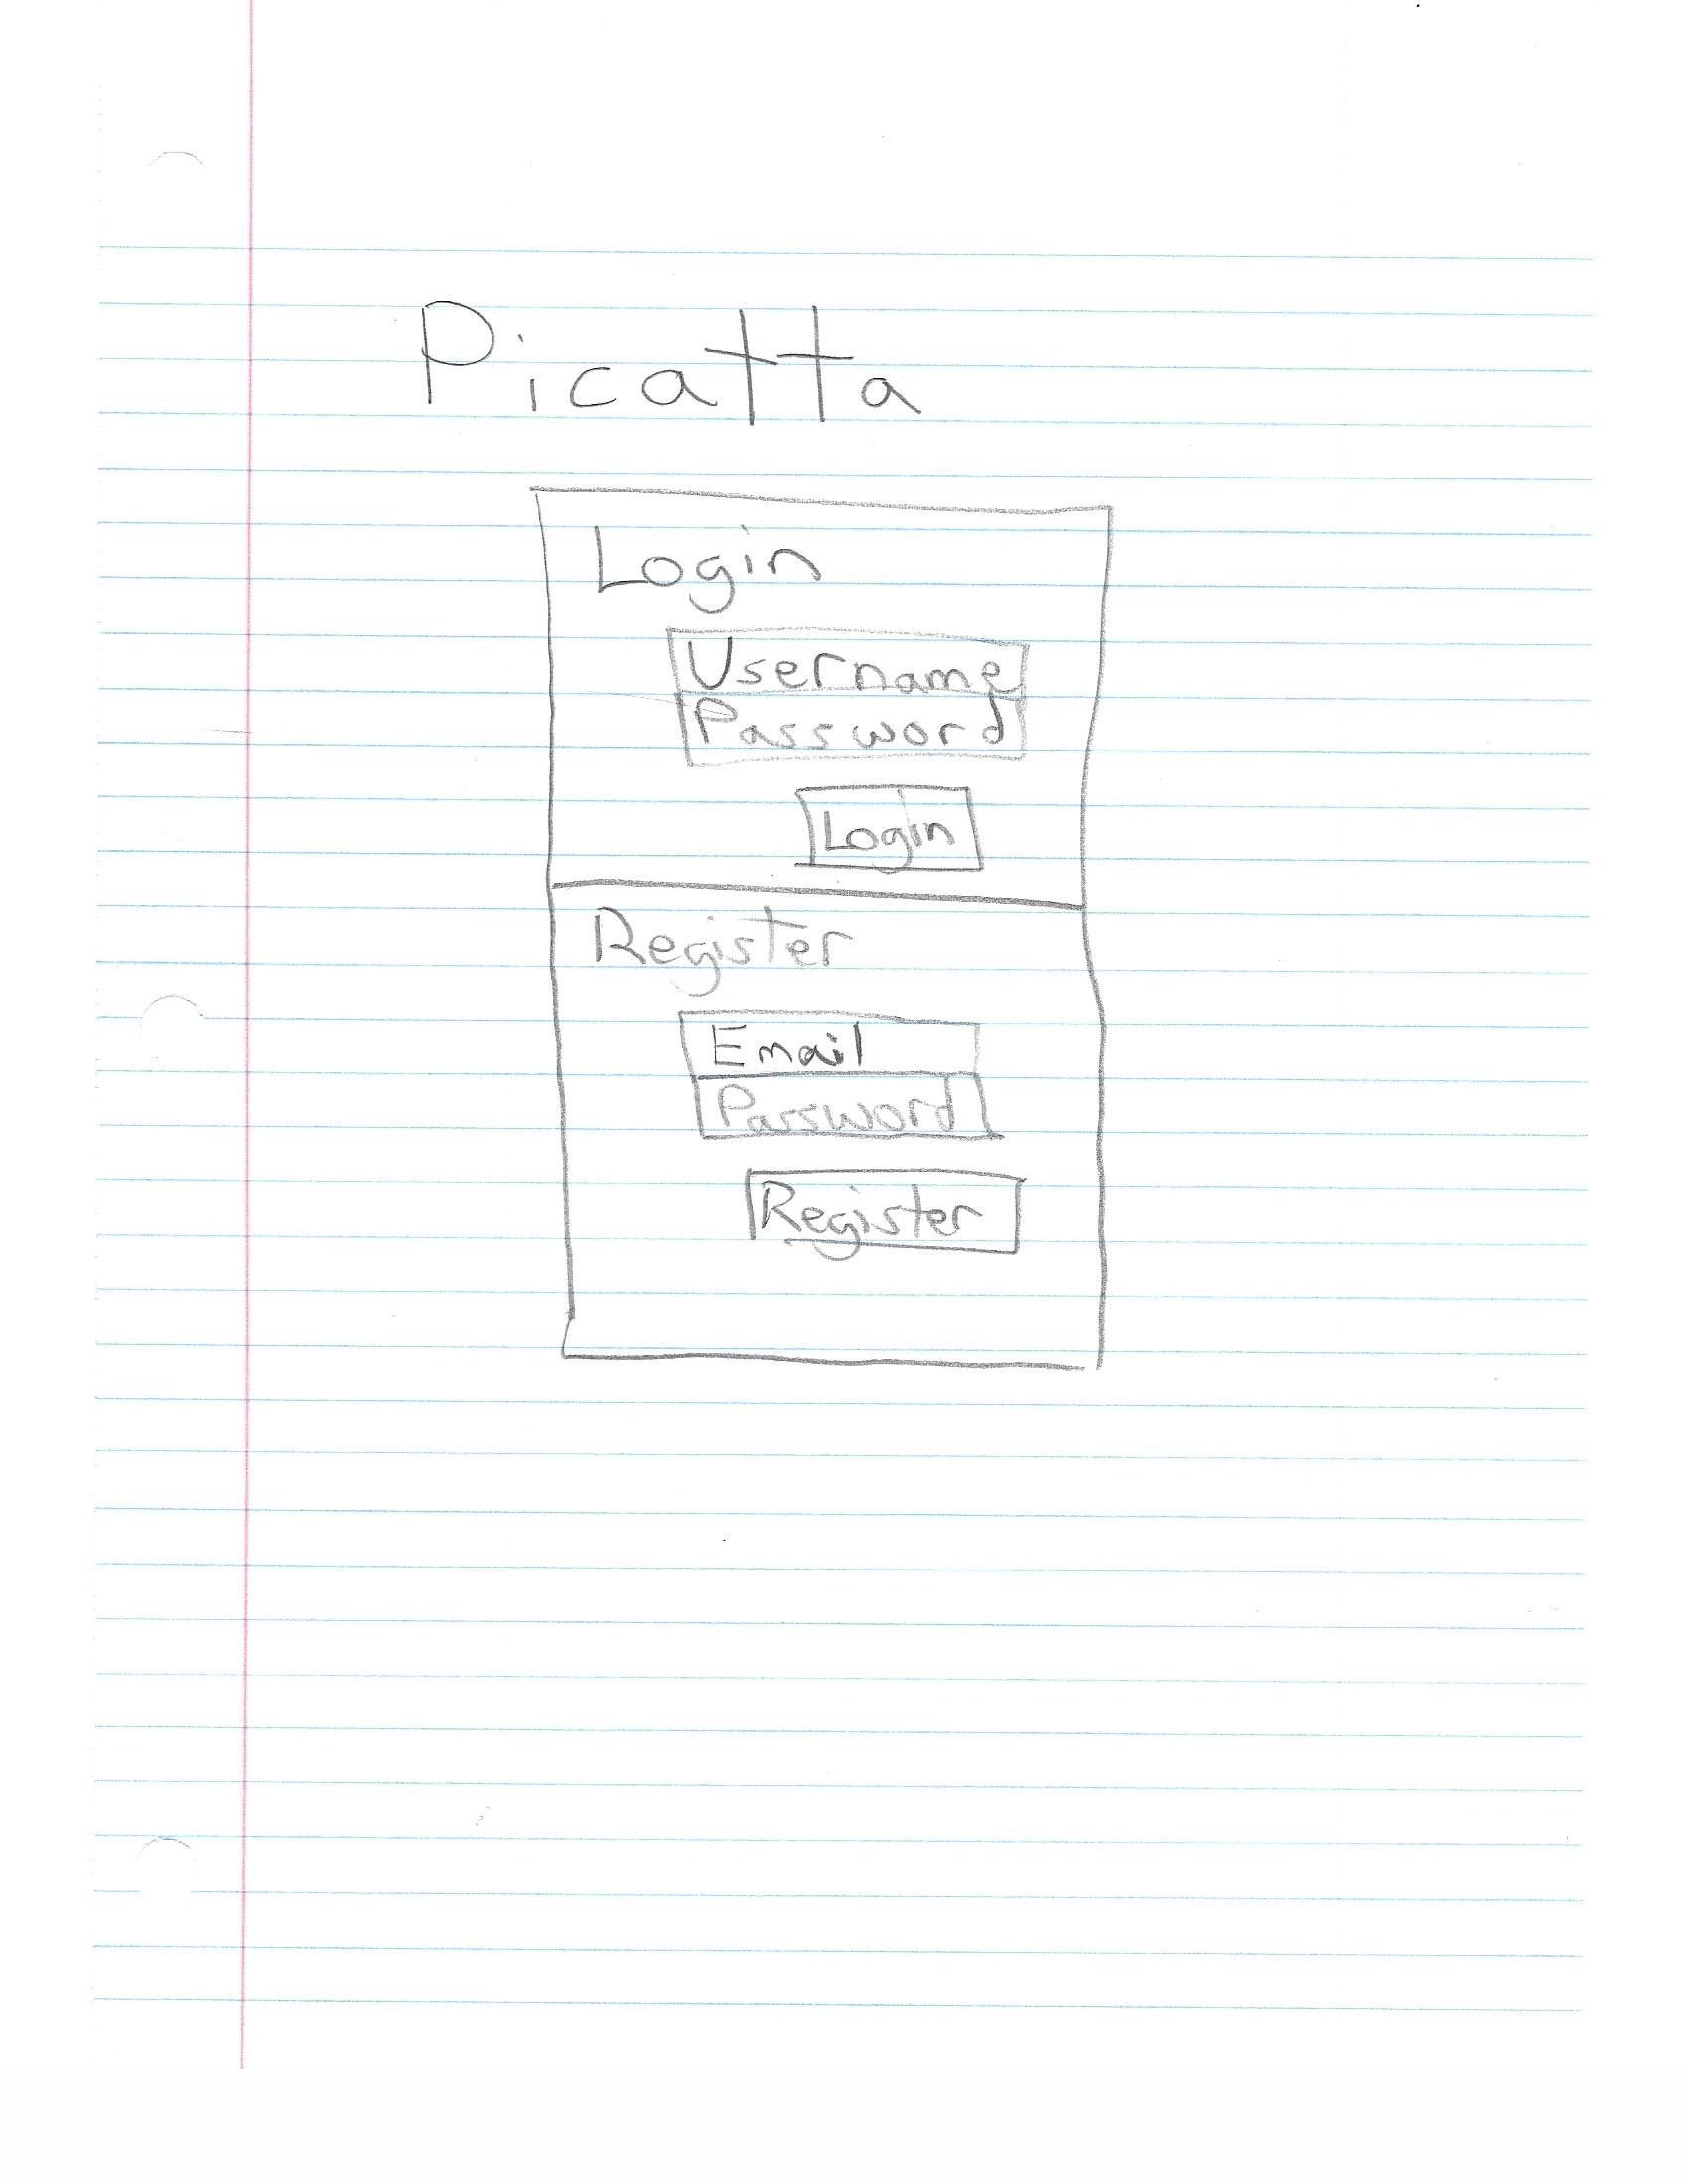 Picatta
Login
Username
Password
Login
Register
Email
Password
Register